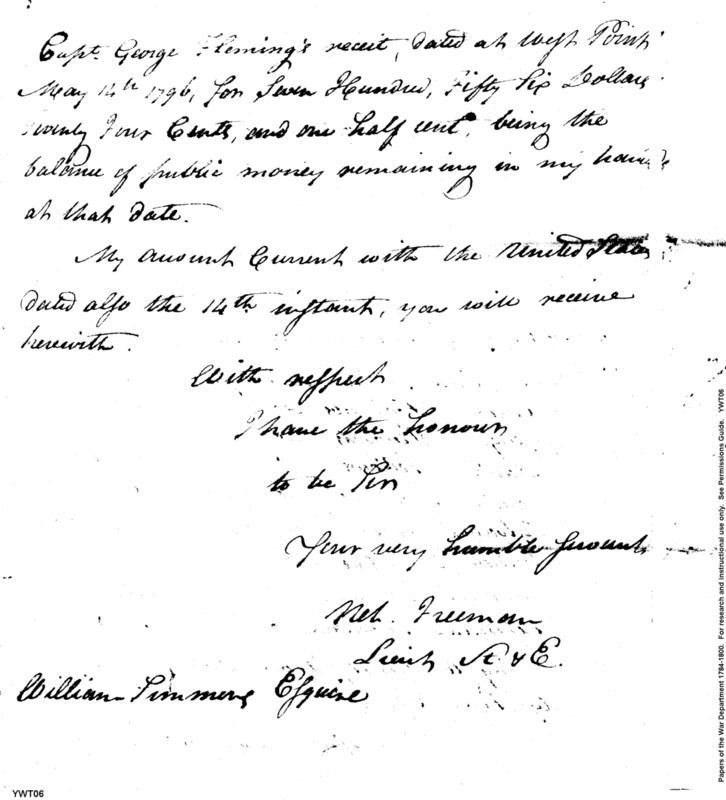 Capt. George Fleming's receit, dated at West Point
May 14th 1796, for Seven Hundred, Fifty Six Dollars
twenty Four Cents, and one half cent, being the
balance of public money remaining in my hands
at that date.
My account Current with the United States
dated also the 14th instant, you will receive
herewith.
With respect
I have the honour
to be Sir
Your very humble Servant
Neh. Freeman
Lieut A & E.
William Simmons Esquire
Papers of the War Department 1784-1800. For research and instructional use only. See Permissions Guide. YWT06
YWT06